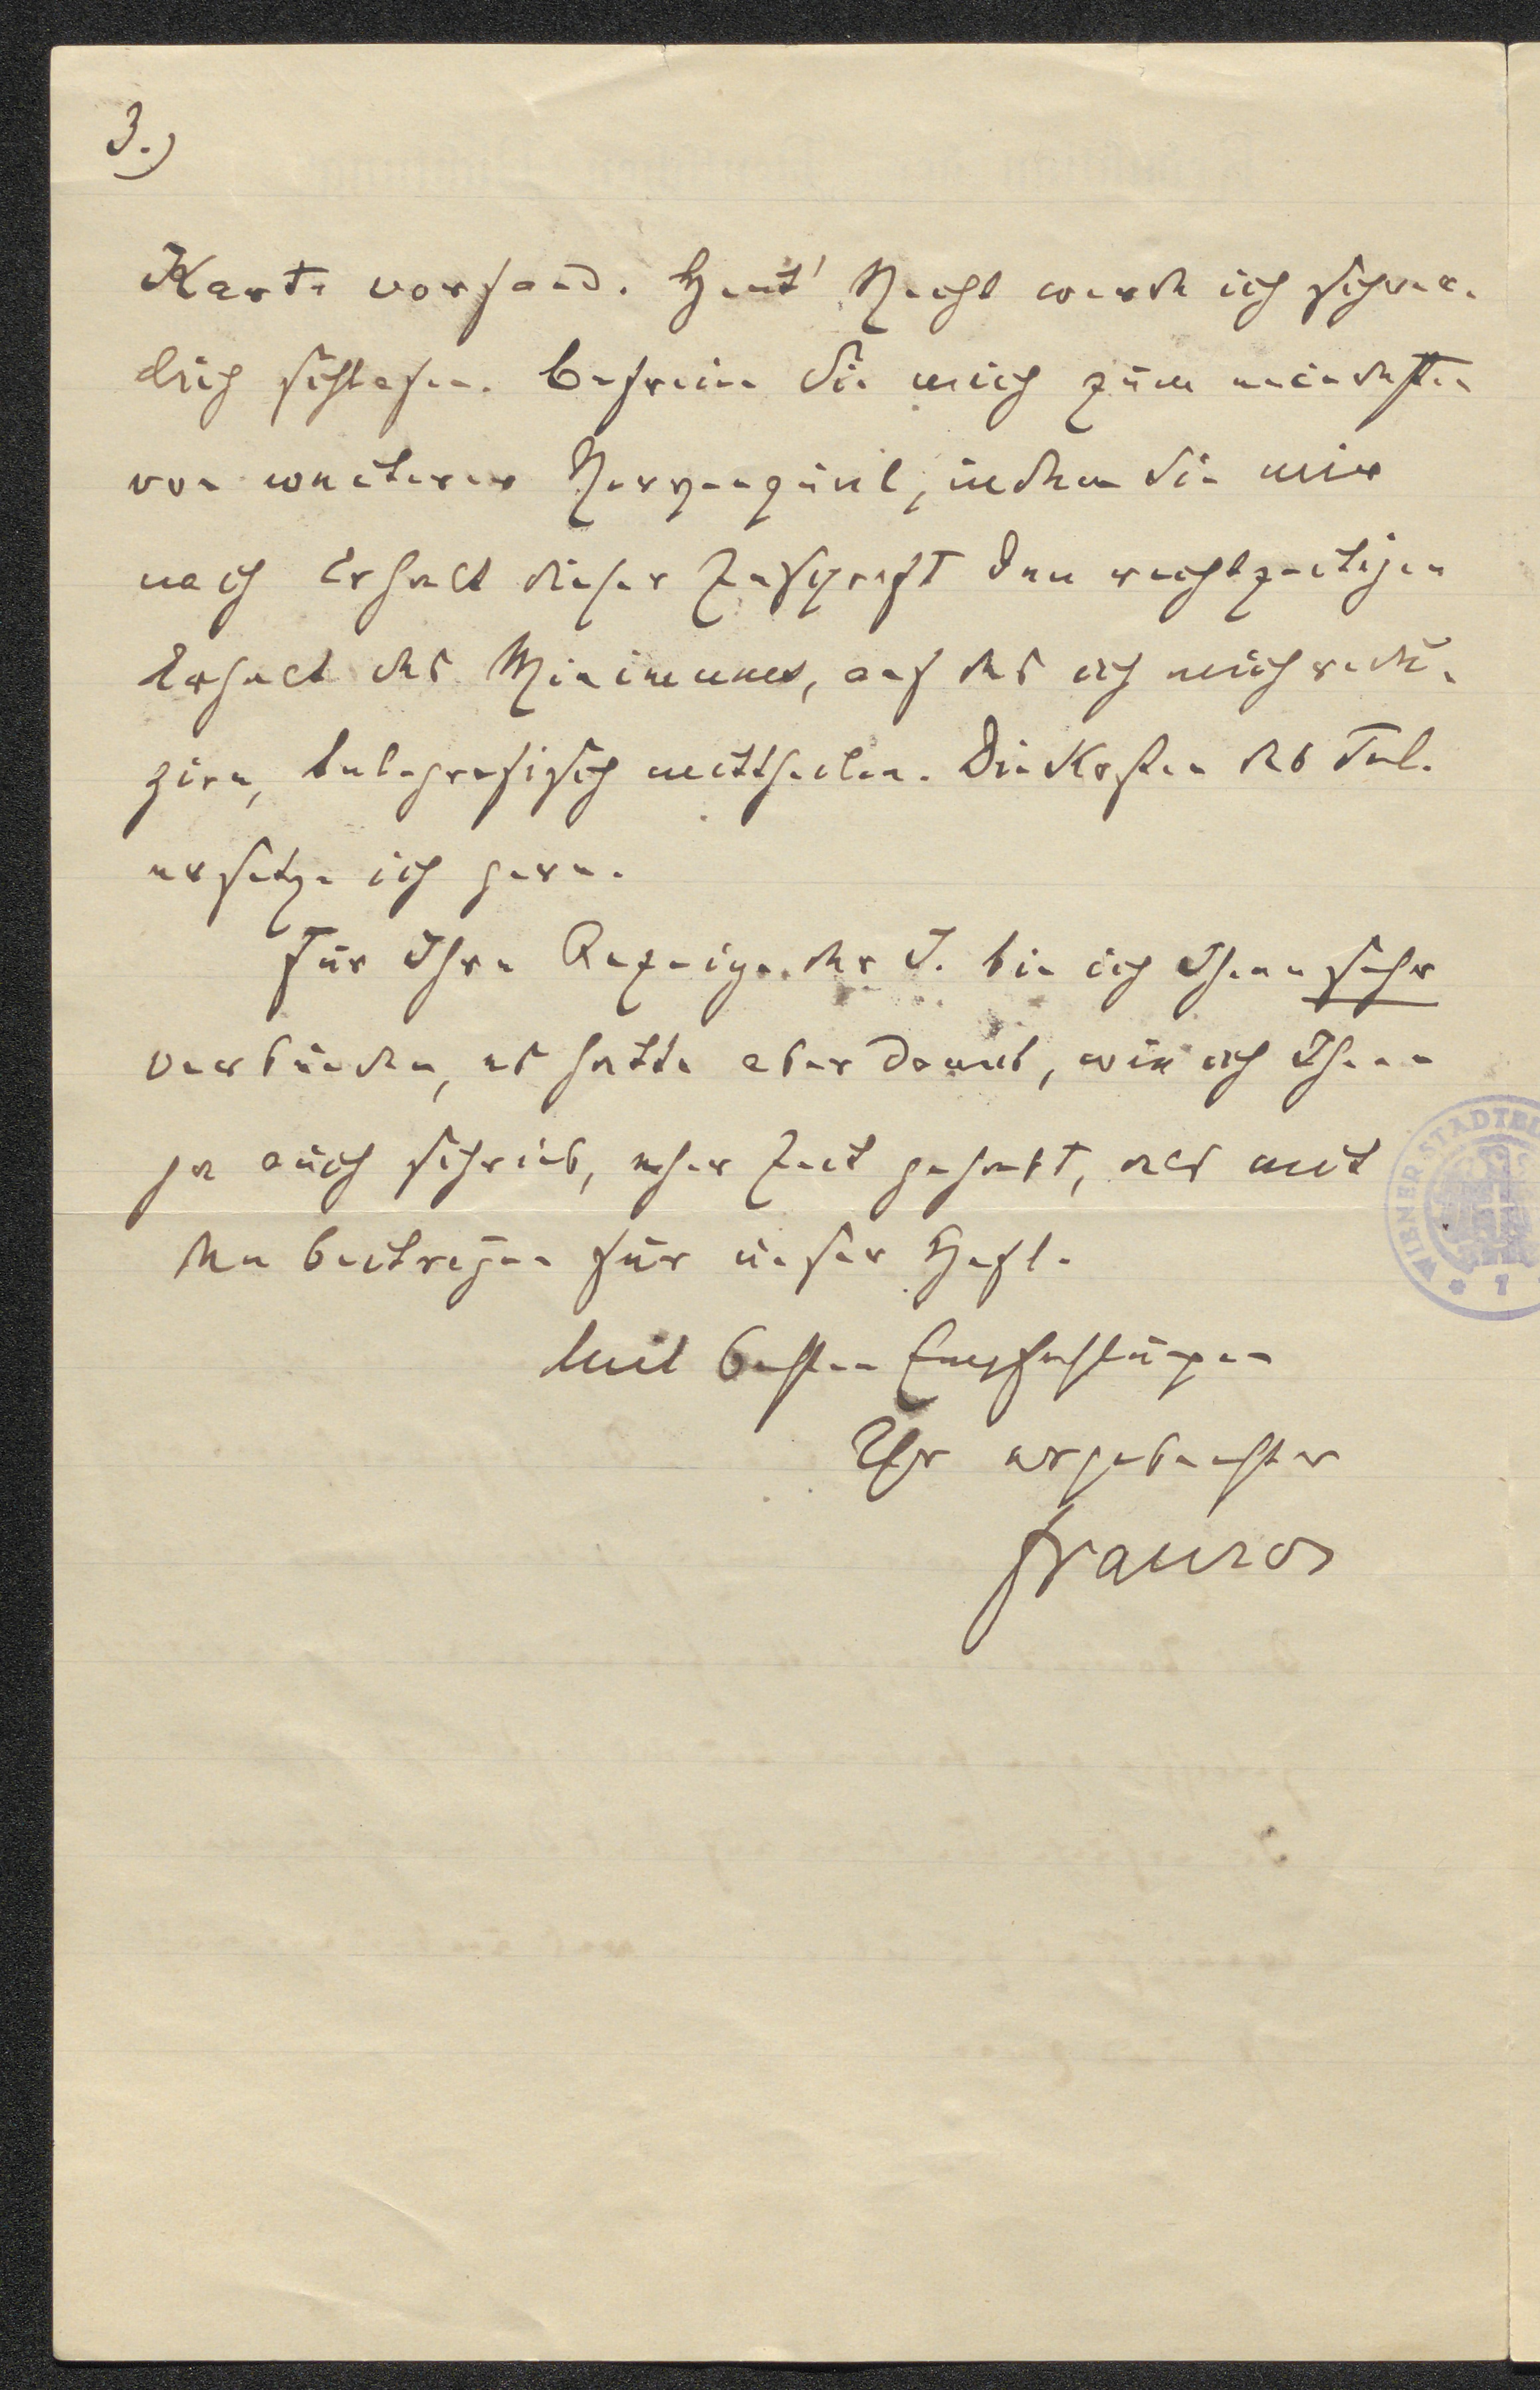 3.)
Karte vorfand. Heut' Nacht werde ich schwer-
lich schlafen. Befreien Sie mich zum mindesten
von weiterer Nervenqual, indem Sie mir
nach Erhalt dieser Zuschrift den rechtzeitigen
Erhalt des Minimums, auf das ich mich redu-
zire, telegrafisch mittheilen. Die Kosten des Tel.
ersetze ich gern.
Für Ihre Anzeige der J. bin ich Ihnen sehr
verbunden, es hatte aber damit, wie ich Ihnen
ja auch schrieb, eher Zeit gehabt, als mit
den Beiträgen für unser Heft.
Mit besten Empfehlungen
Ihr ergebenster
Franzos
WIENER STADTBI
* 1